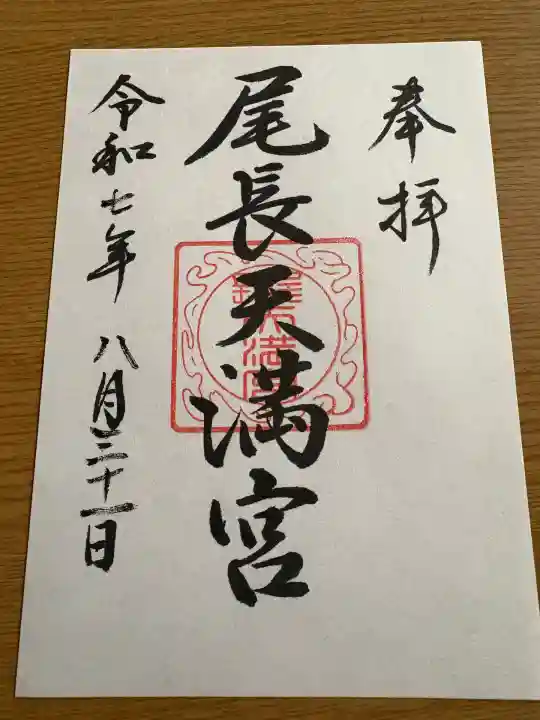 奉拝
尾長天満宮
令和七年 八月三十一日